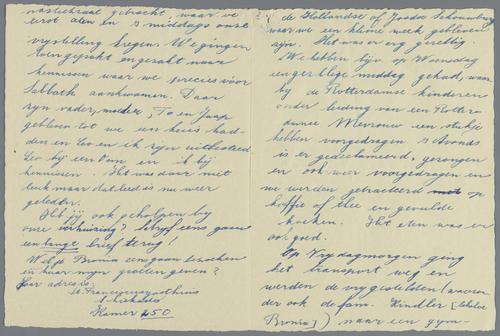 gebracht, waar we
brood aten en 's middags onze
vrijstelling kregen. We gingen
toen gepakt en gezakt naar
kennissen waar we precies vóór
Sabbath aankwamen. Daar
zijn vader, moeder, To en Jaap
gebleven tot we een huis had-
den en Leo en ik zijn uitbesteed
Leo bij een Oom en ik bij
kennissen. Het was daar niet
leuk maar dat leed is nu weer
geleden.
Heb jij ook geholpen bij
jouw verhuizing? Schrijf eens gauw
een lange brief terug!
Wil je Bronia eens gaan bezoeken
en haar mijn groeten geven?
Haar adres is:
St. Franciscusgasthuis
Kamer 450
de Hollandse of Joodse Schouwburg
waar we een kleine week gebleven
zijn. Het was er erg gezellig.
We hebben bijv. op Woensdag
een gezellige middag gehad, waar
bij de Rotterdamse kinderen
onder leiding van een Rotter-
damse Mevrouw een stukje
hebben voorgedragen 's Avonds
is er gedeclameerd, gezongen
en ook weer voorgedragen en
we werden getracteerd op
koffie of thee en gevulde
koeken. Het eten was er
ook goed.
Op Vrijdagmorgen ging
het transport weg en
werden de vrijgestelden (waaron-
der ook de fam. Kindler
Bronia), naar een gym-